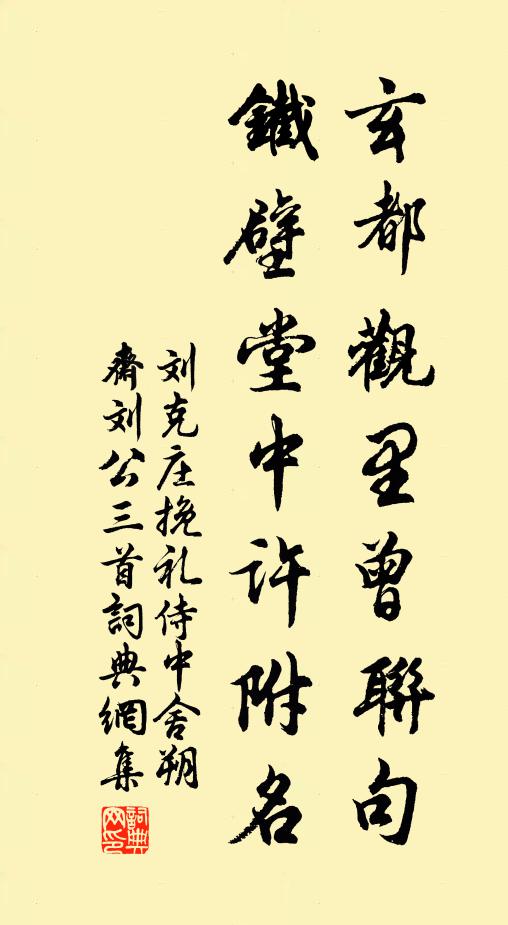 玄都觀里曾聯句
鐵壁堂中許附名
刘克庄挽礼侍中舍朔
齋刘公三首詞典網集
詞典網印